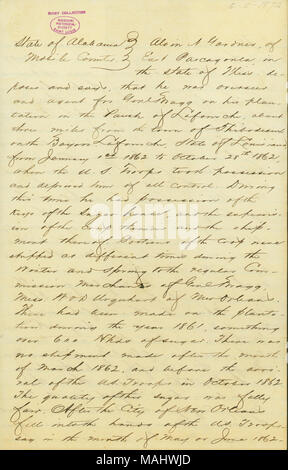 State of Alabama } Alvin N Gardner, of
Mobile County } East Pascagoula, in
the State of Miss de-
poses and says, that he was overseer
and agent for Genl Bragg on his plan-
tation in the Parish of Lafourch, about
three miles from the town of Thibodeaux
on the Bayou Lafourch, State of Louisiana
from January 1st 1862 to October 28th 1862,
when the U S Troops took possession
and deprived him of all control. During
this time he had possession of the
keys of the Sugar house, and the supervision
of the Crop
Portions of the Crop were
shipped at different times during the
Winter and Spring to the regular Com-
mission Merchants of Genl Bragg,
Mess W & D Urquhart of New Orleans.
There had been made on the planta-
tion during the year 1861, something
over 600 Hhds of sugar. There was
no shipment made after the month
of March 1862, and before the arri-
val of the US Troops in October 1862
The quality of this sugar was fully
fair. After the City of New Orleans
fell into the hands of the US Troops,
say in the month of May or June 1862
alamy
Image ID: MAHWJD
www.alamy.com